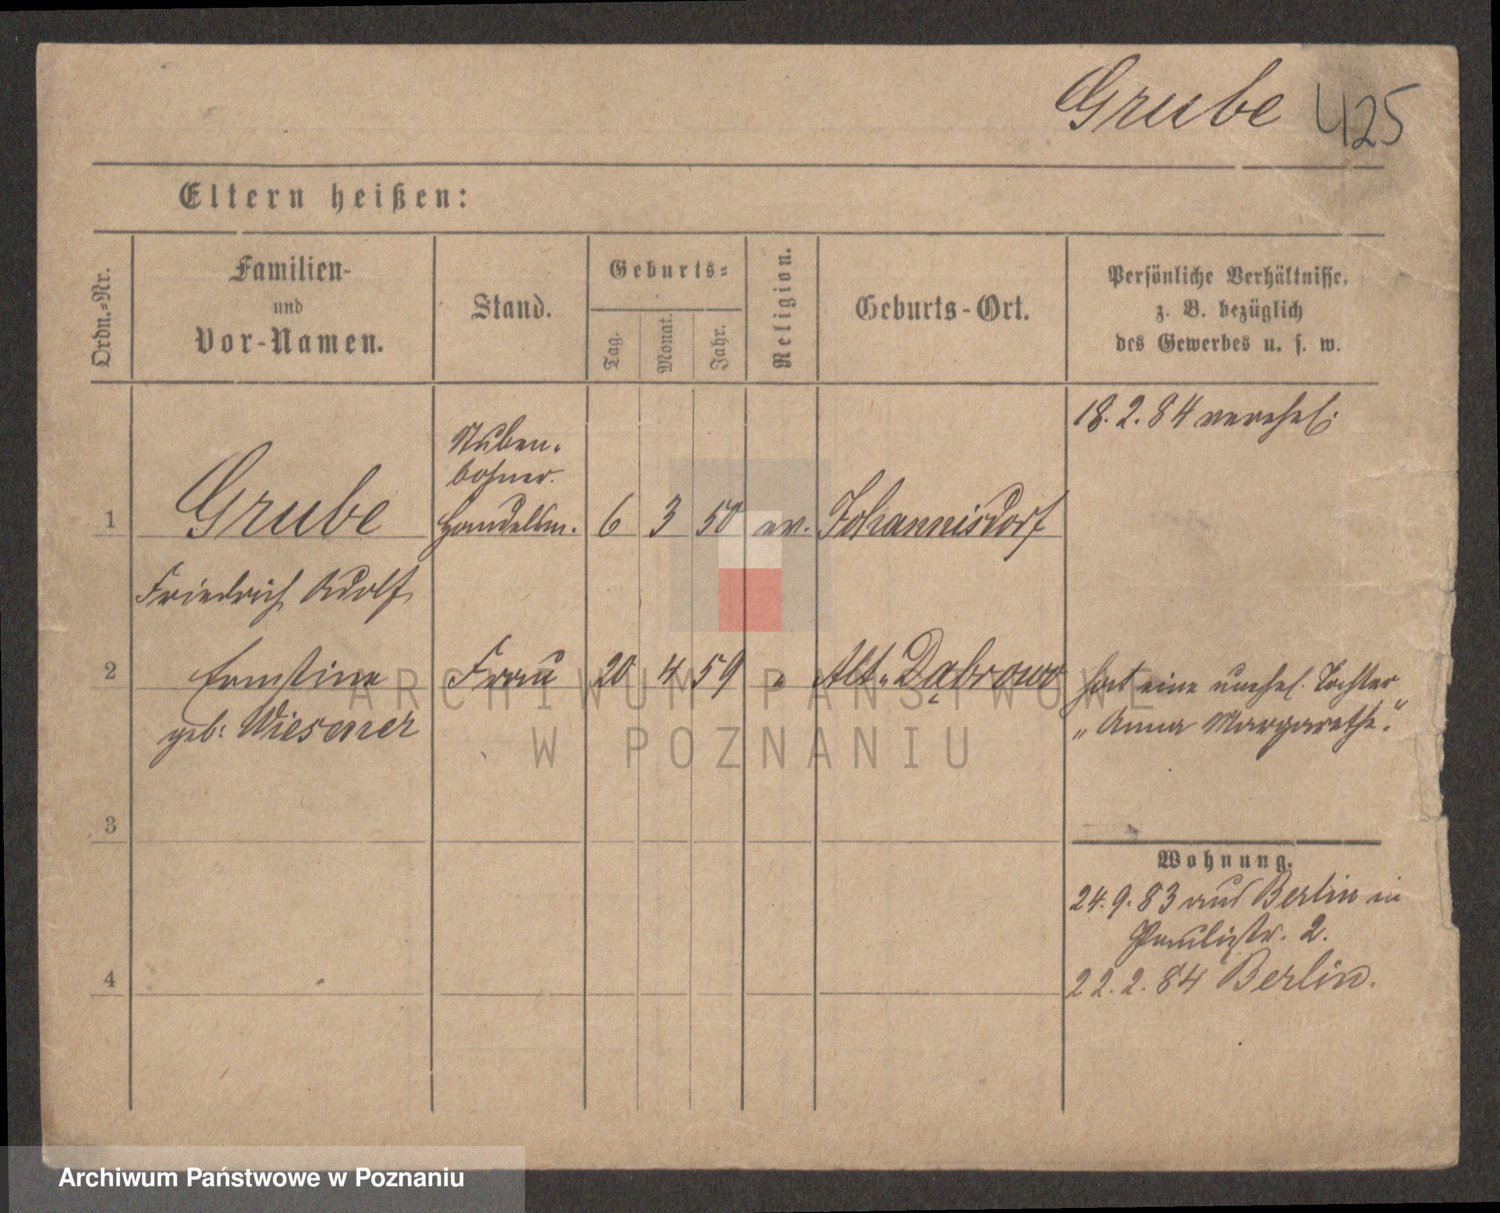 Grube 425
Eltern heißen:
Ordn.-Nr.
Familien-
und
Vor-Namen.
Stand.
Geburts-
Tag.
Monat.
Jahr.
Religion.
Geburts-Ort.
Persönliche Verhältnisse.
z. B. bezüglich
des Gewerbes u. s. w.
18.2.84 verehel.
Stuben-
bohner.
1 Grube Handelsm. 6 3 50 ev. Johannisdorf
Friedrich Adolf
2 Ernstine Frau 20 4 59 " Alt-Dabrowo hat eine unehel. Tochter
geb. Wiesener „Anna Margarethe."
3
Wohnung.
24.9.83 aus Berlin in
Paulistr. 2.
4 22.2.84 Berlin.
ARCHIWUM PAŃSTWOWE
W POZNANIU
Archiwum Państwowe w Poznaniu